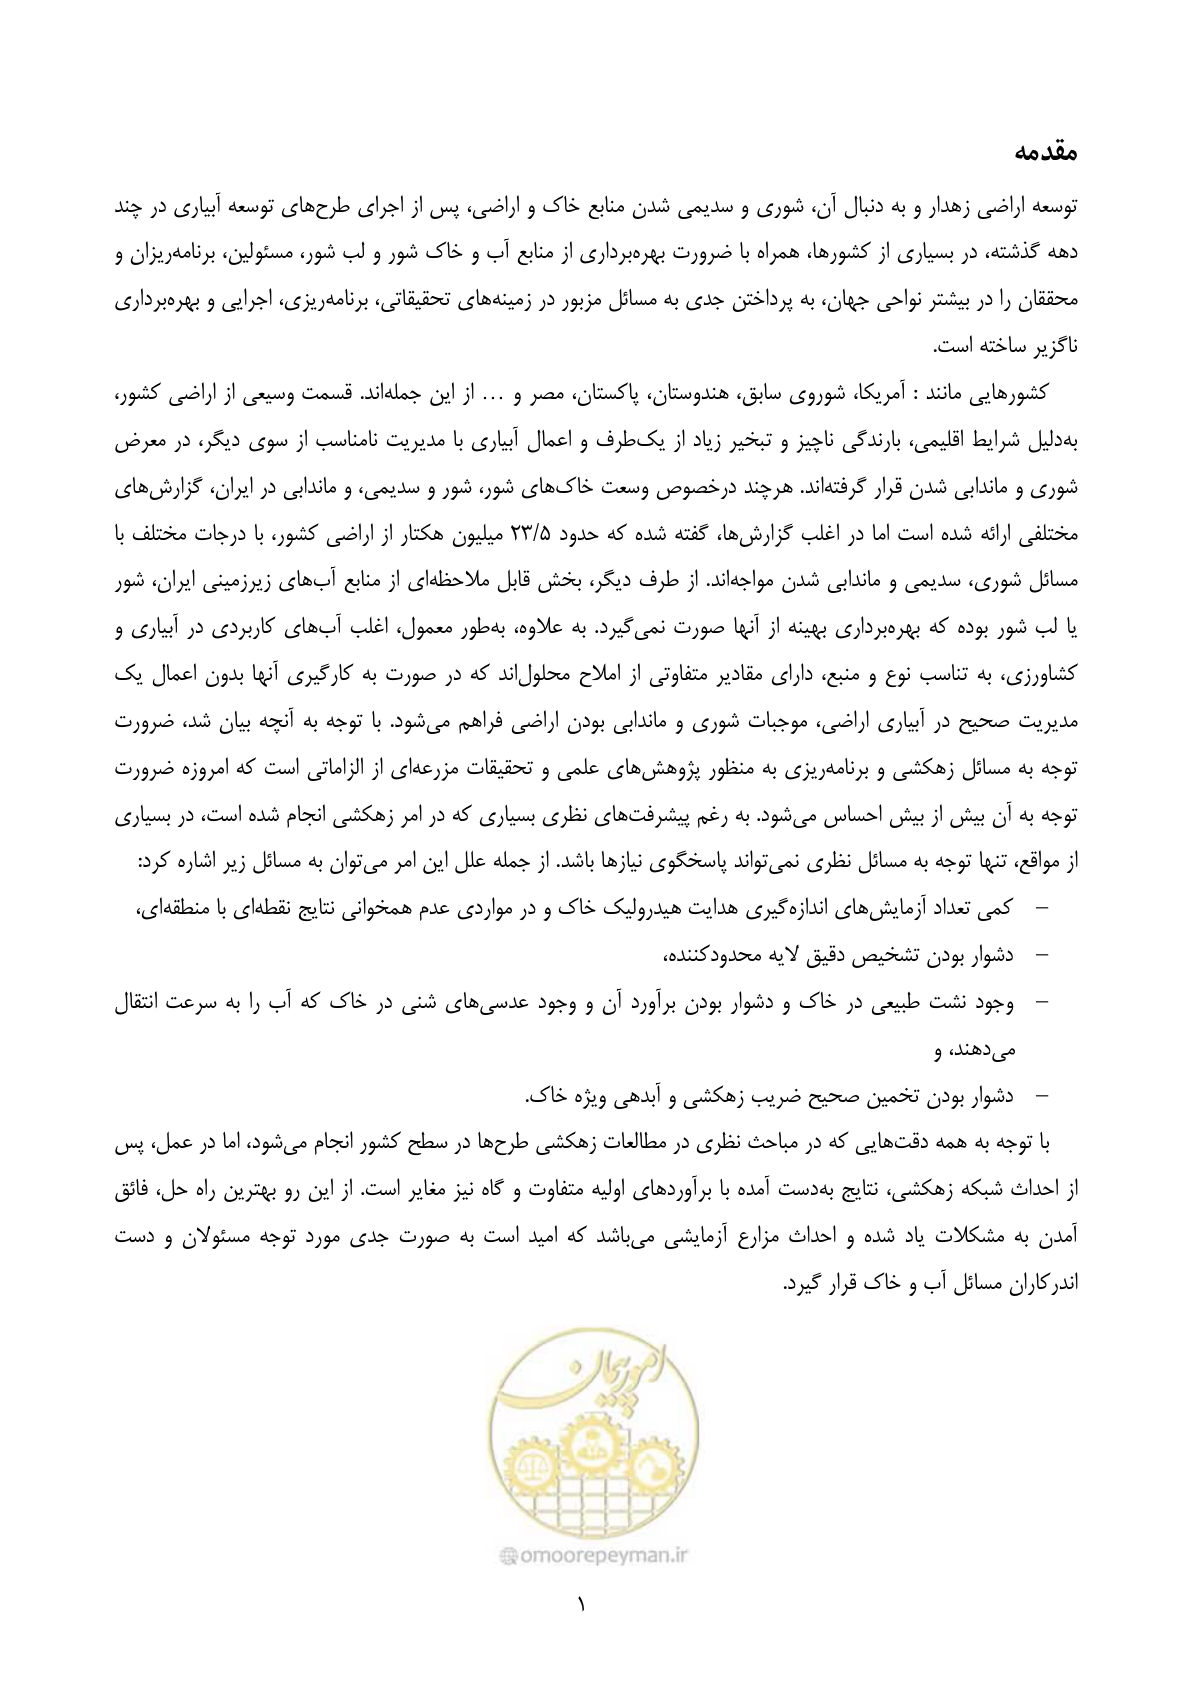 مقدمه
توسعه اراضی زهدار و به دنبال آن، شوری و سدیمی شدن منابع خاک و اراضی، پس از اجرای طرح‌های توسعه آبیاری در چند
دهه گذشته، در بسیاری از کشورها، همراه با ضرورت بهره‌برداری از منابع آب و خاک شور و لب شور، مسئولین، برنامه‌ریزان و
محققان را در بیشتر نواحی جهان، به پرداختن جدی به مسائل مزبور در زمینه‌های تحقیقاتی، برنامه‌ریزی، اجرایی و بهره‌برداری
ناگزیر ساخته است.
کشورهایی مانند : آمریکا، شوروی سابق، هندوستان، پاکستان، مصر و ... از این جمله‌اند. قسمت وسیعی از اراضی کشور،
به‌دلیل شرایط اقلیمی، بارندگی ناچیز و تبخیر زیاد از یک‌طرف و اعمال آبیاری با مدیریت نامناسب از سوی دیگر، در معرض
شوری و ماندابی شدن قرار گرفته‌اند. هرچند درخصوص وسعت خاک‌های شور، شور و سدیمی، و ماندابی در ایران، گزارش‌های
مختلفی ارائه شده است اما در اغلب گزارش‌ها، گفته شده که حدود ۲۳/۵ میلیون هکتار از اراضی کشور، با درجات مختلف با
مسائل شوری، سدیمی و ماندابی شدن مواجه‌اند. از طرف دیگر، بخش قابل ملاحظه‌ای از منابع آب‌های زیرزمینی ایران، شور
یا لب شور بوده که بهره‌برداری بهینه از آنها صورت نمی‌گیرد. به علاوه، به‌طور معمول، اغلب آب‌های کاربردی در آبیاری و
کشاورزی، به تناسب نوع و منبع، دارای مقادیر متفاوتی از املاح محلول‌اند که در صورت به کارگیری آنها بدون اعمال یک
مدیریت صحیح در آبیاری اراضی، موجبات شوری و ماندابی بودن اراضی فراهم می‌شود. با توجه به آنچه بیان شد، ضرورت
توجه به مسائل زهکشی و برنامه‌ریزی به منظور پژوهش‌های علمی و تحقیقات مزرعه‌ای از الزاماتی است که امروزه ضرورت
توجه به آن بیش از بیش احساس می‌شود. به رغم پیشرفت‌های نظری بسیاری که در امر زهکشی انجام شده است، در بسیاری
از مواقع، تنها توجه به مسائل نظری نمی‌تواند پاسخگوی نیازها باشد. از جمله علل این امر می‌توان به مسائل زیر اشاره کرد:
– کمی تعداد آزمایش‌های اندازه‌گیری هدایت هیدرولیک خاک و در مواردی عدم همخوانی نتایج نقطه‌ای با منطقه‌ای،
– دشوار بودن تشخیص دقیق لایه محدودکننده،
– وجود نشت طبیعی در خاک و دشوار بودن برآورد آن و وجود عدسی‌های شنی در خاک که آب را به سرعت انتقال
می‌دهند، و
– دشوار بودن تخمین صحیح ضریب زهکشی و آبدهی ویژه خاک.
با توجه به همه دقت‌هایی که در مباحث نظری در مطالعات زهکشی طرح‌ها در سطح کشور انجام می‌شود، اما در عمل، پس
از احداث شبکه زهکشی، نتایج به‌دست آمده با برآوردهای اولیه متفاوت و گاه نیز مغایر است. از این رو بهترین راه حل، فائق
آمدن به مشکلات یاد شده و احداث مزارع آزمایشی می‌باشد که امید است به صورت جدی مورد توجه مسئولان و دست
اندرکاران مسائل آب و خاک قرار گیرد.
امور پیمان
@omoorepeyman.ir
۱